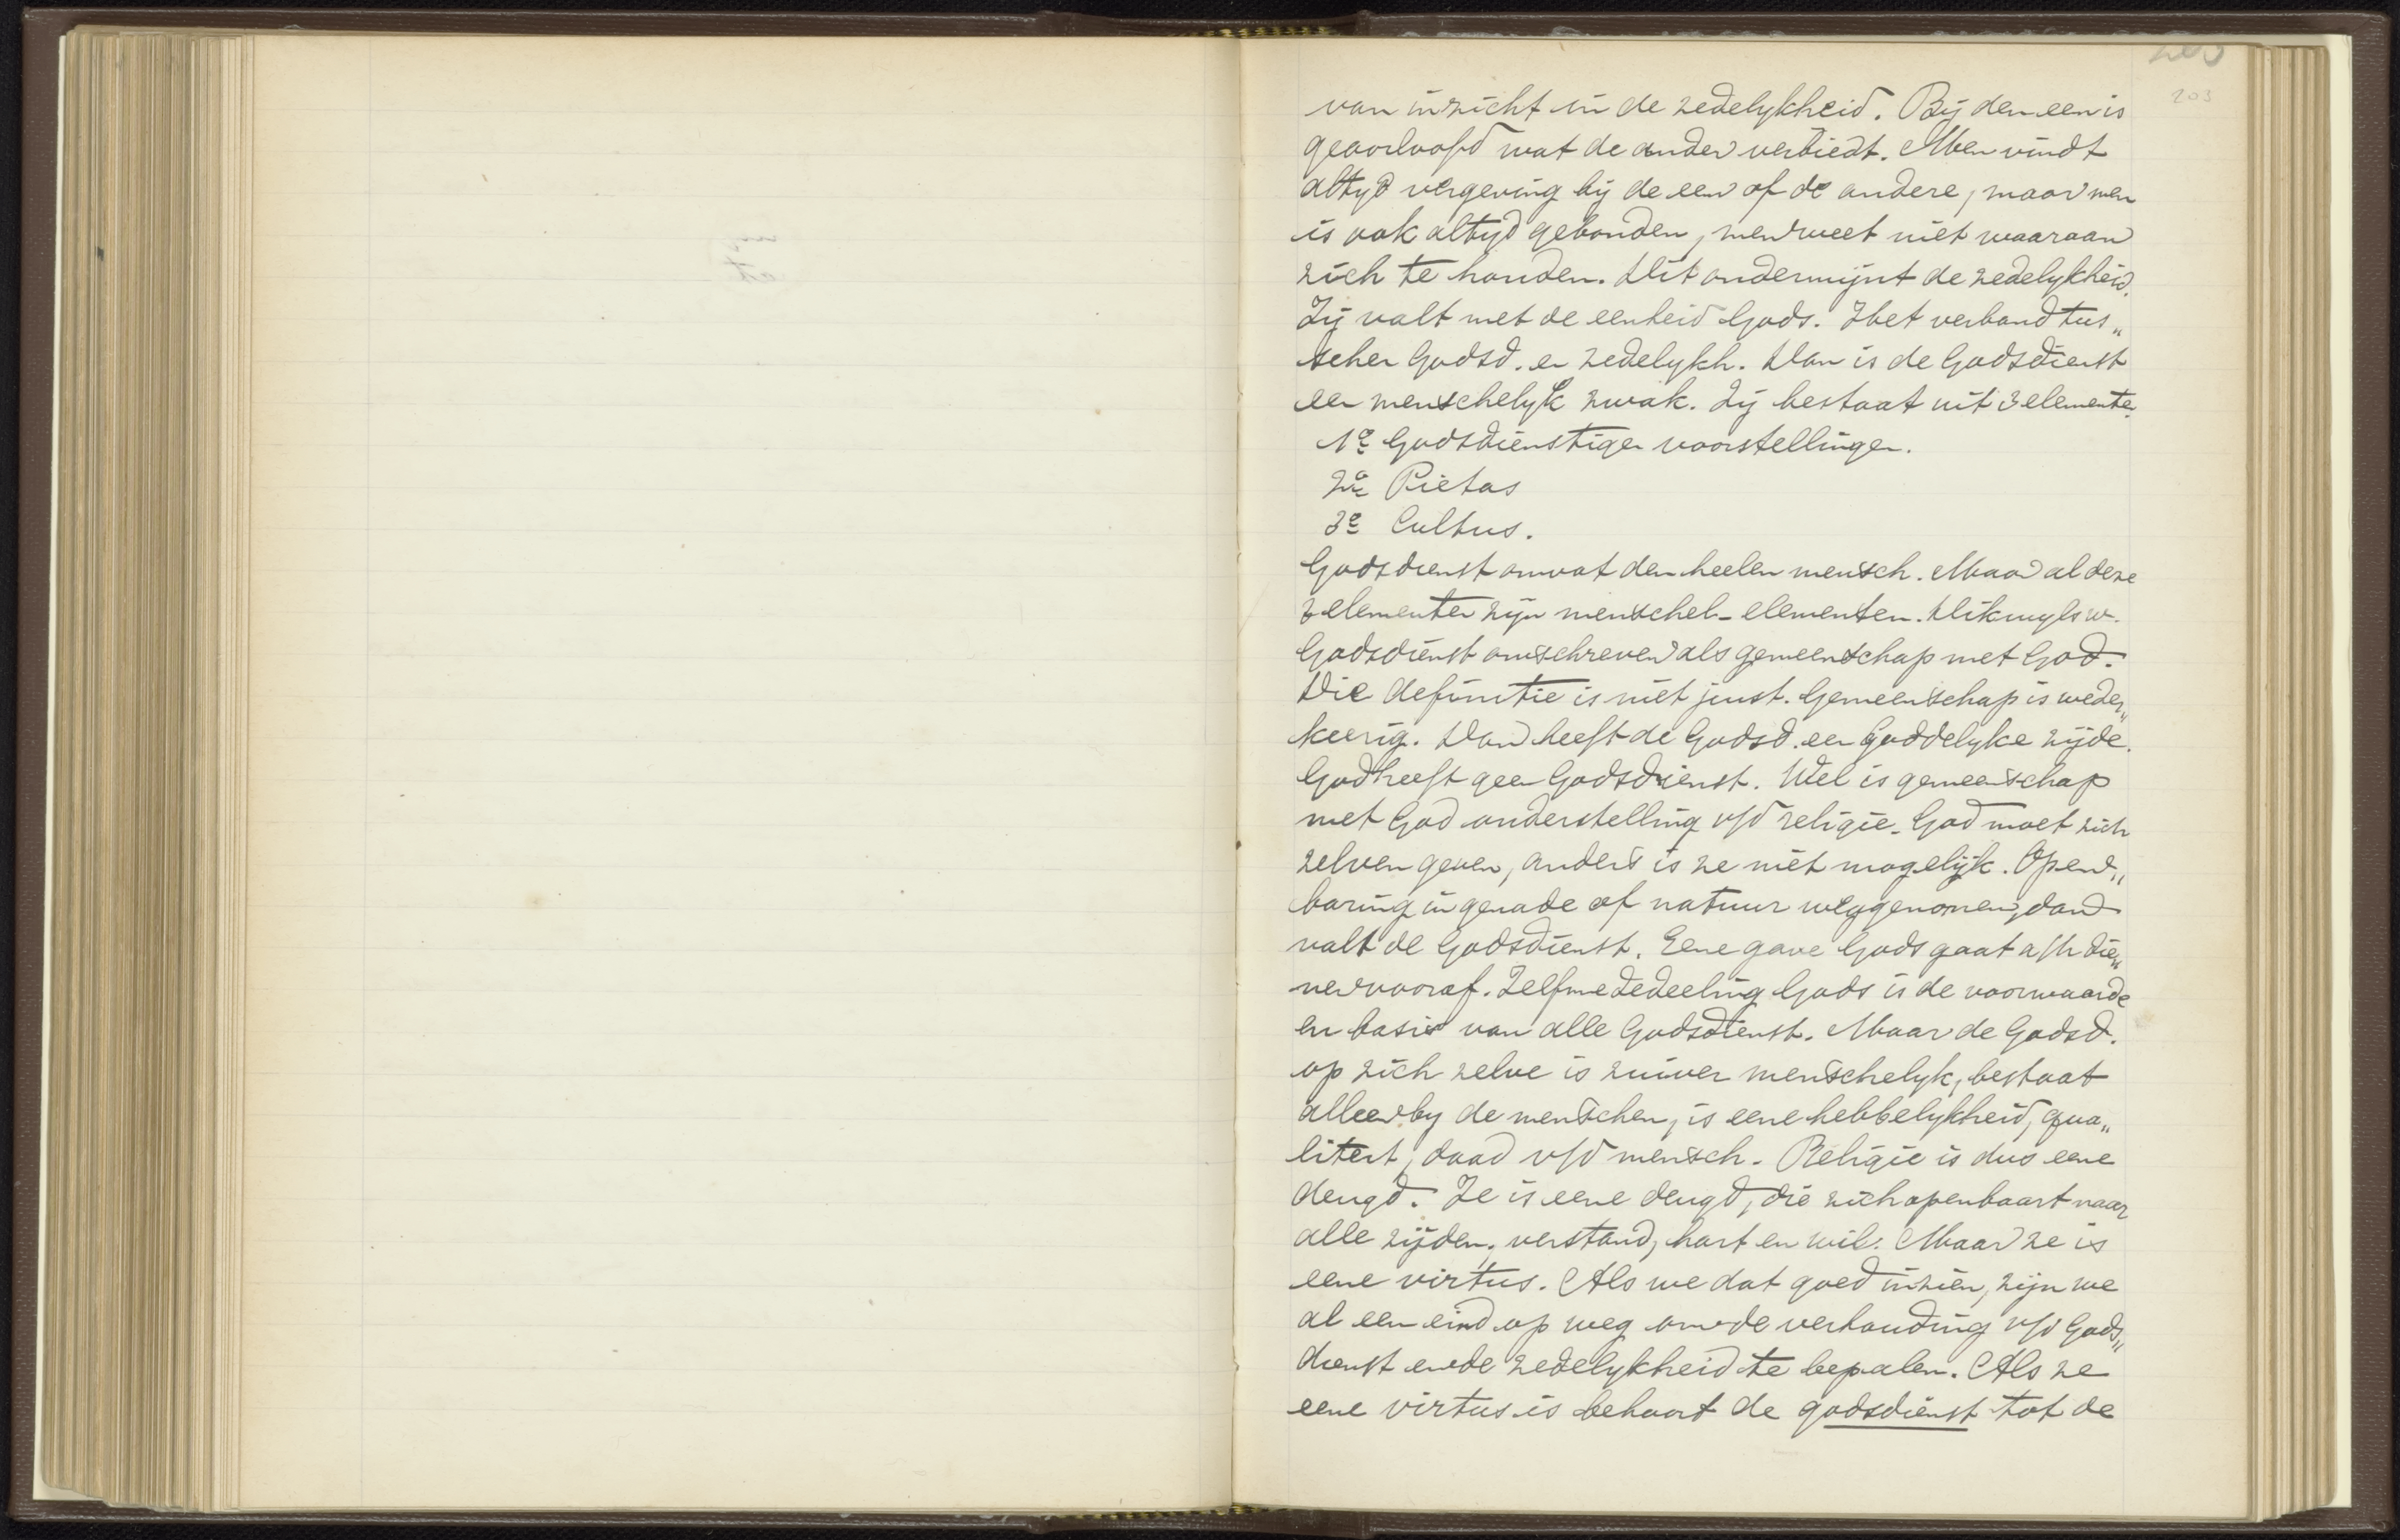 203
203
van inzicht in de zedelykheid. Bij den een is
geoorloofd wat de ander verbiedt. Men vindt
altyd vergeving bij de een of de andere, maar men
is ook altyd gebonden, men weet niet waaraan
zich te houden. Dit ondermijnt de zedelykheid.
Zij valt met de eenheid Gods. Het verband tus„
schen Godsd. en zedelykh. Dan is de Godsdienst
een menschelyk zwak. Zij bestaat uit 3 elementen.
1e Godsdienstige voorstellingen.
2e Pietas
3e Cultus.
Godsdienst omvat den heelen mensch. Maar al deze
3 elementen zijn menschel. elementen. Dikwyls w.
Godsdienst omschreven als gemeenschap met God.
Die definitie is niet juist. Gemeenschap is weder„
keerig. Dan heeft de Godsd. een Goddelyke zijde.
God heeft geen Godsdienst. Wel is gemeenschap
met God onderstelling v/d religie. God moet zich
zelven geven, anders is ze niet mogelijk. Open„
baring in genade of natuur weggenomen, dan
valt de Godsdienst. Eene gave Gods gaat a/h die„
nen vooraf. Zelfmededeeling Gods is de voorwaarde
en basis van alle Godsdienst. Maar de Godsd.
op zich zelve is zuiver menschelyk, bestaat
alleen by de menschen, is eene hebbelykheid, qua„
liteit, daad v/d mensch. Religie is dus eene
deugd. Ze is eene deugd, die zich openbaart naar
alle zijden, verstand, hart en wil. Maar ze is
eene virtus. Als we dat goed inzien, zijn we
al een eind op weg om de verhouding v/d Gods„
dienst en de zedelykheid te bepalen. Als ze
eene virtus is behoort de godsdienst tot de